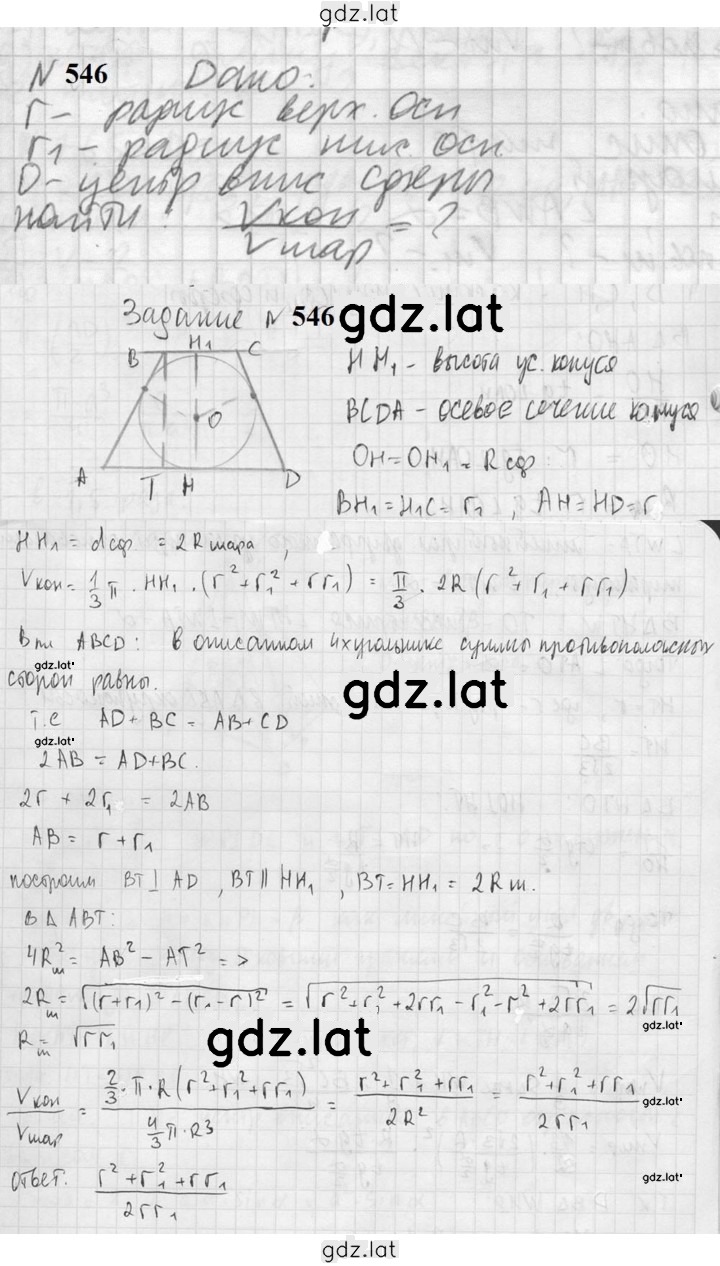 gdz.lat
N 546 Дано:
r – радиус верх. осн
r1 – радиус ниж. осн
O – центр впис сферы
найти: Vкон/Vшар = ?
Задание N 546
gdz.lat
B H1 C
O
A T H D
HH1 – высота ус. конуса
BCDA – осевое сечение конуса
OH=OH1=Rсф
BH1=H1C=r1, AH=HD=r
HH1 = dсф = 2Rшара,
Vкон = 1/3 π · HH1 · (r²+r1²+rr1) = π/3 · 2R(r²+r1+rr1)
Впл ABCD: в описанном 4хугольнике суммы противоположных
gdz.lat
сторон равны.
gdz.lat
т.е AD+BC = AB+CD
gdz.lat
2AB = AD+BC.
2r + 2r1 = 2AB
AB = r+r1
построим BT⊥AD, BT∥HH1, BT=HH1 = 2Rш.
в ΔABT:
4Rш² = AB² – AT² =>
2Rш = √((r+r1)² – (r1–r)²) = √(r²+r1²+2rr1–r1²–r²+2rr1) = 2√rr1
gdz.lat
Rш = √rr1
gdz.lat
Vкон/Vшар = (2/3·π·R(r²+r1²+rr1))/(4/3π·R3) = (r²+r1²+rr1)/(2R²) = (r²+r1²+rr1)/(2rr1)
gdz.lat
ответ: (r²+r1²+rr1)/(2rr1)
gdz.lat
gdz.lat